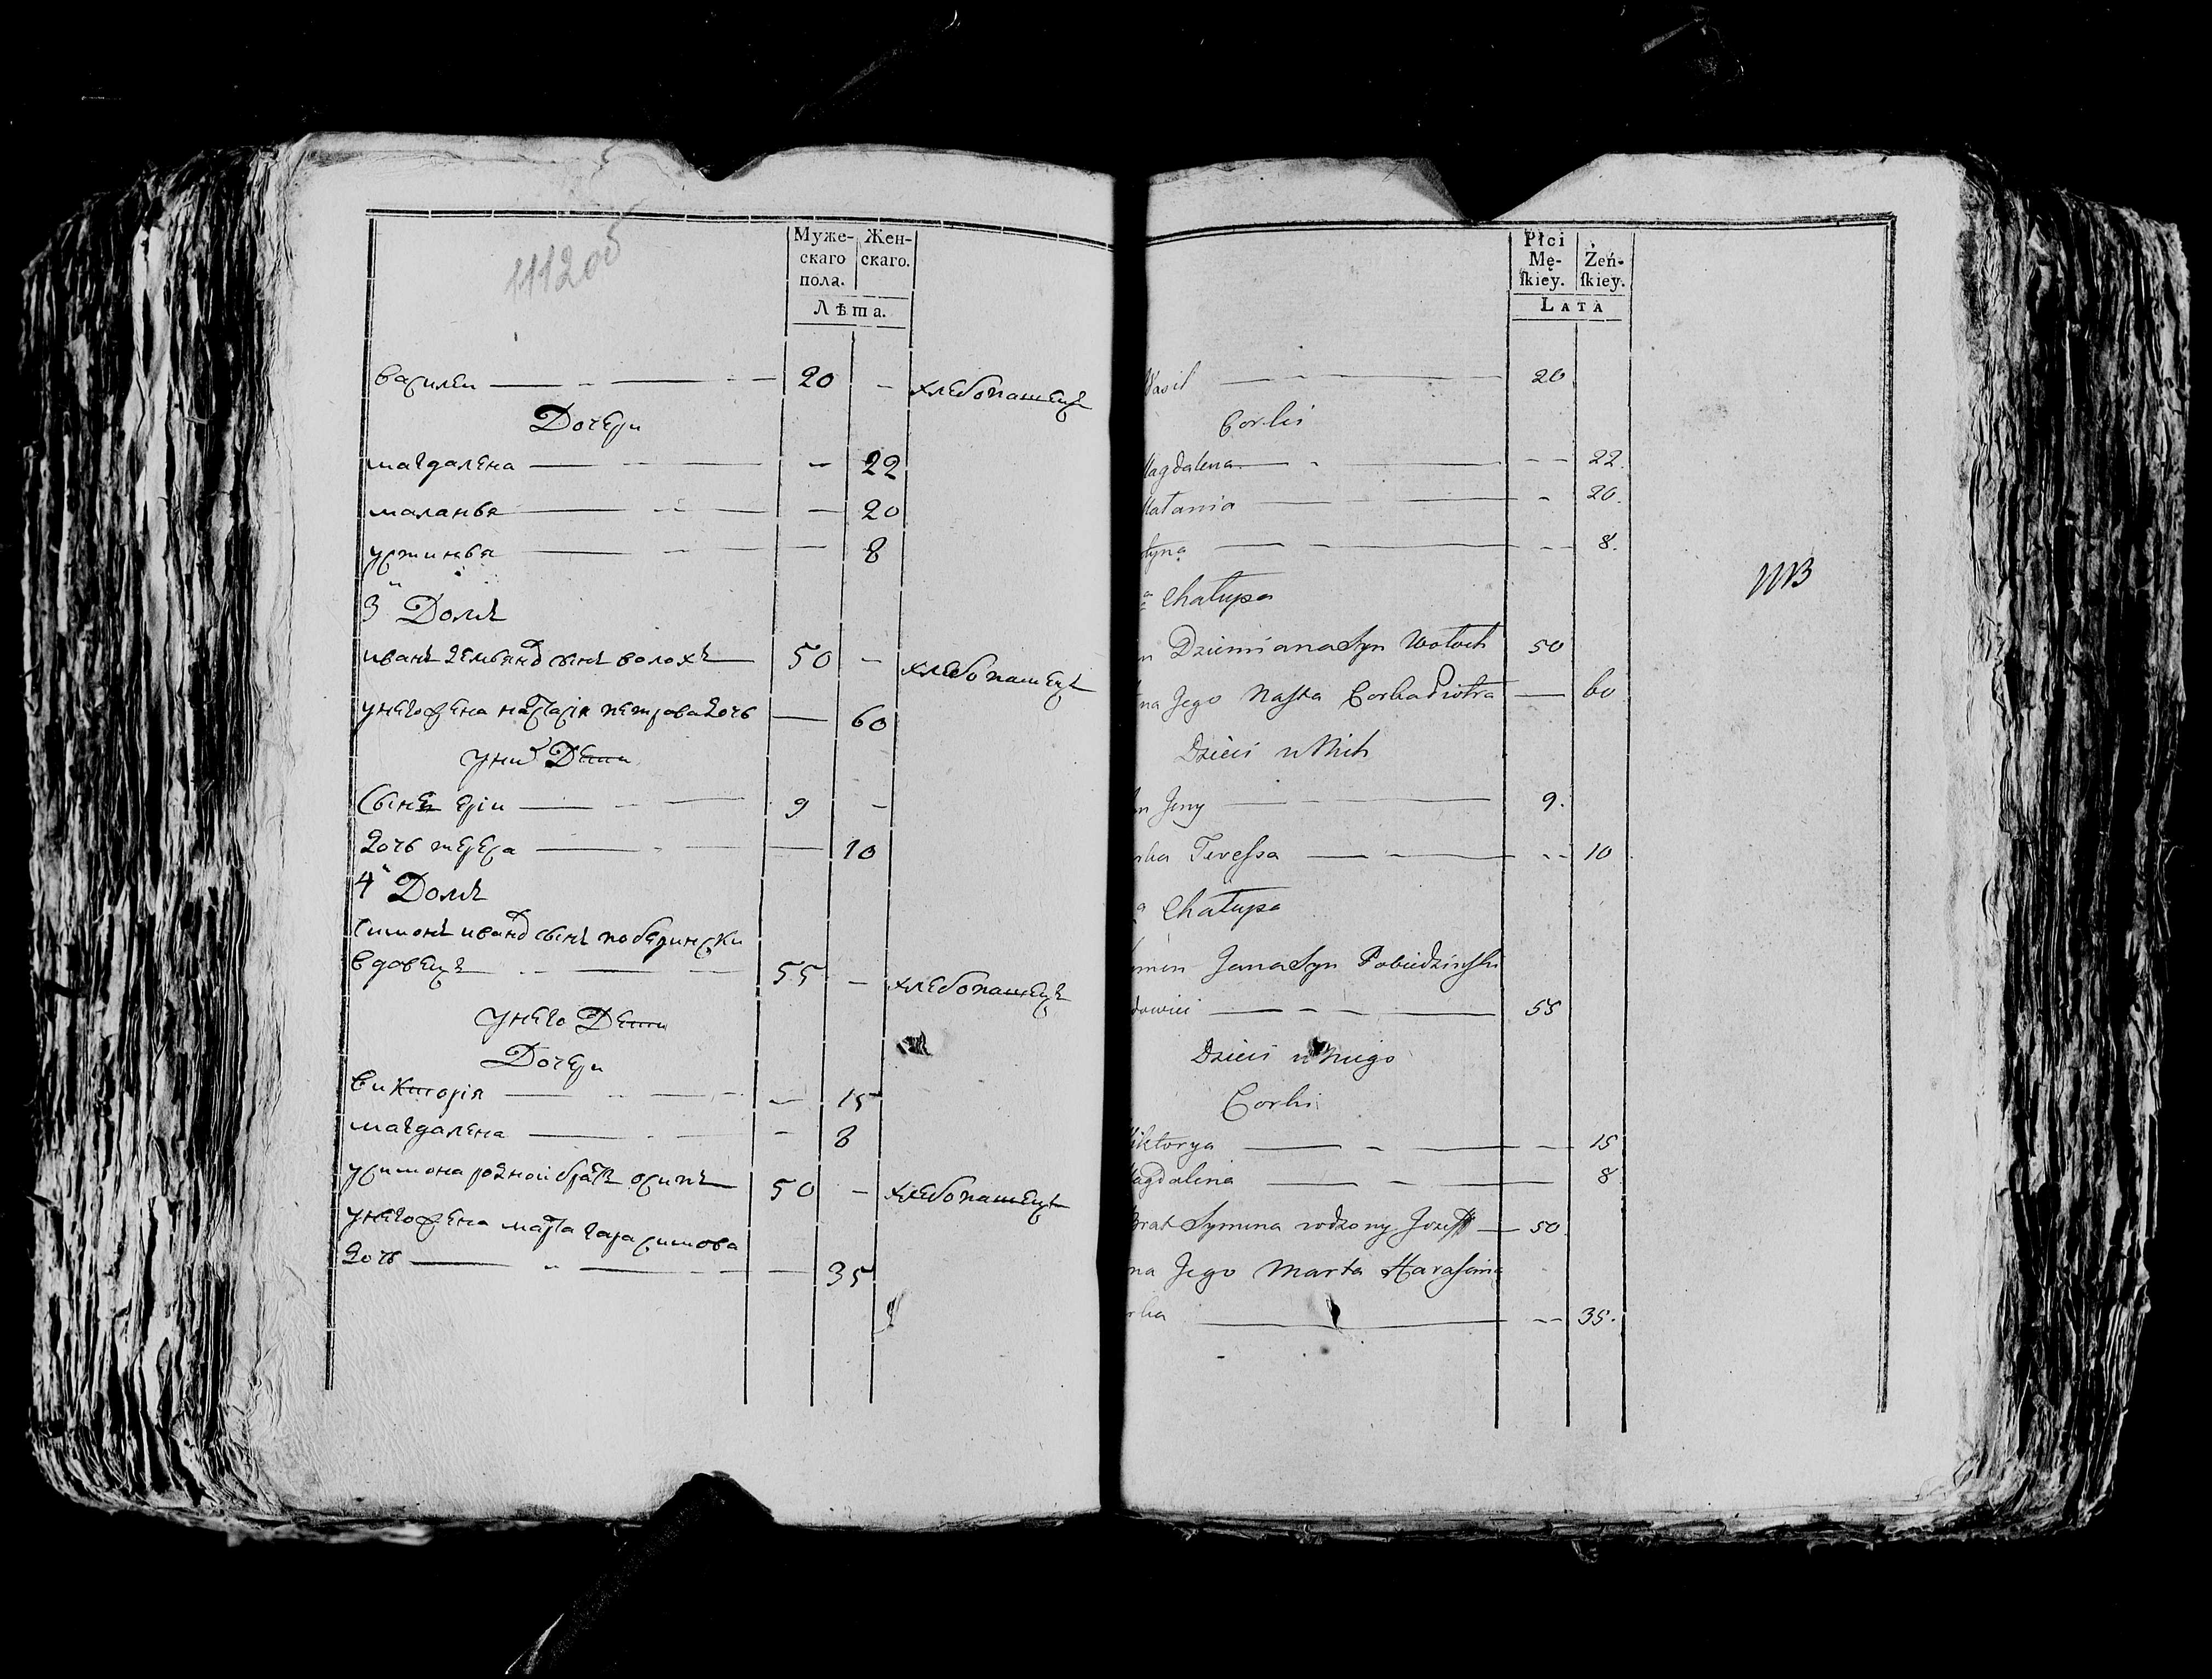 1112об
Муже- Жен-
скаго скаго.
пола.
Лѣта.
василеи 20 - хлебопашецъ
Дочери
магдалена - 22
маланья - 20
устинья - 8
3й Домъ
иванъ демьянов сынъ волохъ 50 - хлебопашецъ
унего жена настасія петрова дочь 60
уних Дети
Сынъ ерiи 9 -
дочь тереса 10
4й Домъ
Симонъ иванов сынъ победински
вдовецъ 55 - хлебопашецъ
унего Дети
Дочери
викторія - 15
магдалена - 8
усимона родной братъ осипъ 50 - хлебопашецъ
унего жена марта гарасимова
дочь 35
Płci
Mę- Żeń-
skiey. skiey.
LATA
Wasil 20
Corki
Magdalena 22.
Małania 20.
tyna 8.
a Chałupa
n Dziemiana Syn Wołoch 50
na Jego Nasta Corka Piotra 60
Dzieci u Nich
n Jery 9.
rka Teressa 10
a Chałupa
men Jana Syn Pobiedzinski
dowiec 55
Dzieci u Niego
Corki
Wiktorya 15
Magdalena 8
Brat Symona rodzony Jozeff 50
na Jego Marta Harasima
rka 35.
1113